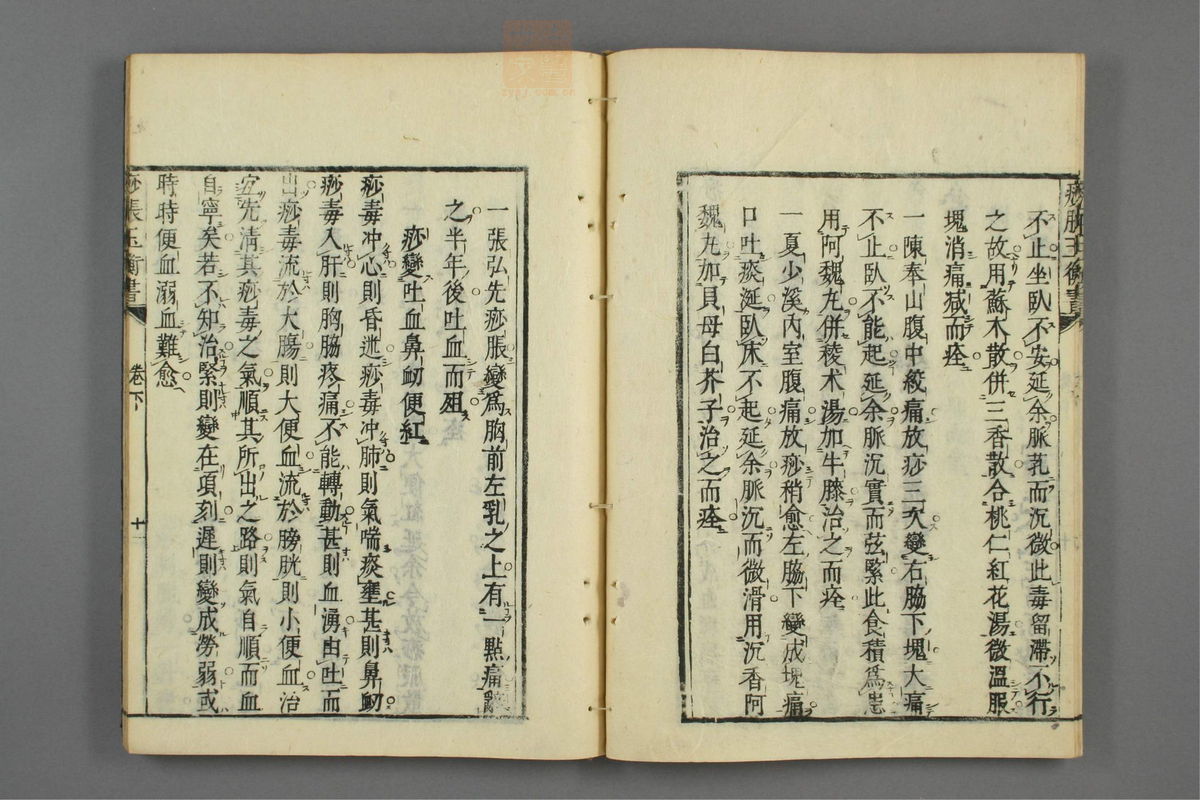 不止坐臥不安延余脈芤而沉微此毒留滯不行
之故用蘇木散併三香散合桃仁紅花湯微溫服
塊消痛減而痊
一陳奉山腹中絞痛放痧三次變右脇下塊大痛
不止臥不能起延余脈沉實而弦緊此食積為患
用阿魏丸併稜术湯加牛膝治之而痊
一夏少溪內室腹痛放痧稍愈左脇下變成塊痛
口吐痰涎臥床不起延余脈沉而微滑用沉香阿
魏丸加貝母白芥子治之而痊
一張弘先痧脹變為胸前左乳之上有一點痛
之半年後吐血而殂
痧變吐血鼻衂便紅
痧毒冲心則昏迷痧毒冲肺則氣喘痰壅甚則鼻衂
痧毒入肝則胸脇疼痛不能轉動甚則血湧由吐而
出痧毒流於大腸則大便血流於膀胱則小便血治
宜先清其痧毒之氣順其所出之路則氣自順而血
自寧矣若不知治緊則變在項刻遲則變成勞弱或
時時便血溺血難愈
痧脹玉衡書
卷下
十一